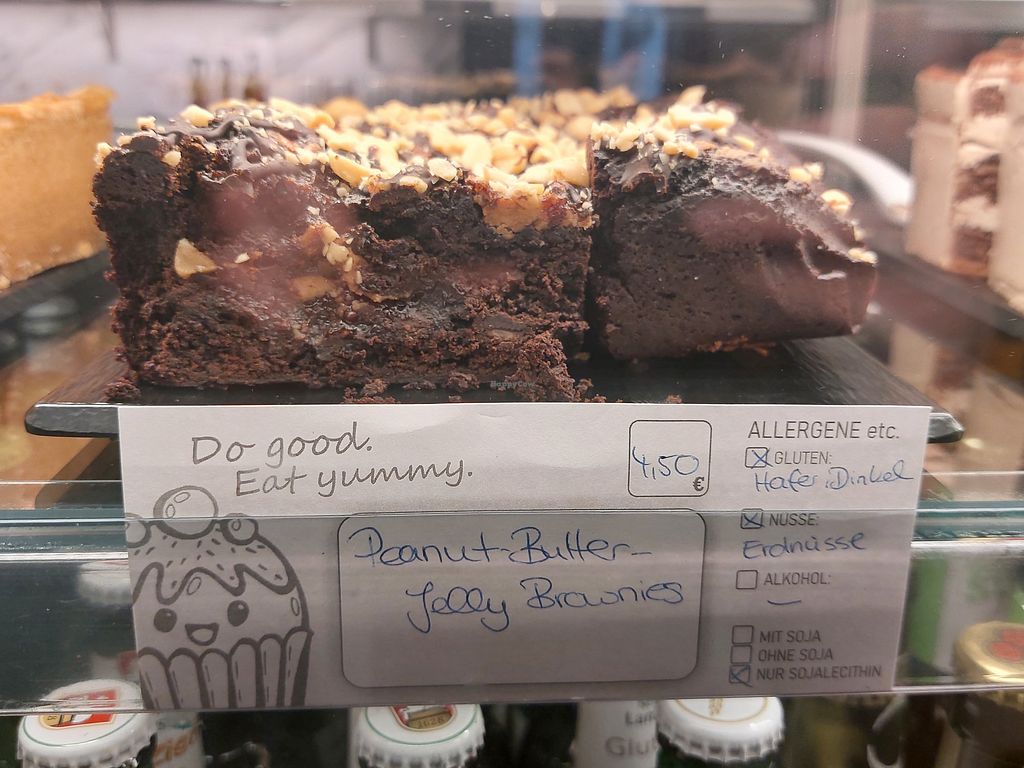 HappyCow
Do good.
Eat yummy.
4,50
€
Peanut-Butter-
Jelly Brownies
ALLERGENE etc.
GLUTEN:
Hafer, Dinkel
NÜSSE:
Erdnüsse
ALKOHOL:
MIT SOJA
OHNE SOJA
NUR SOJALECITHIN
1628